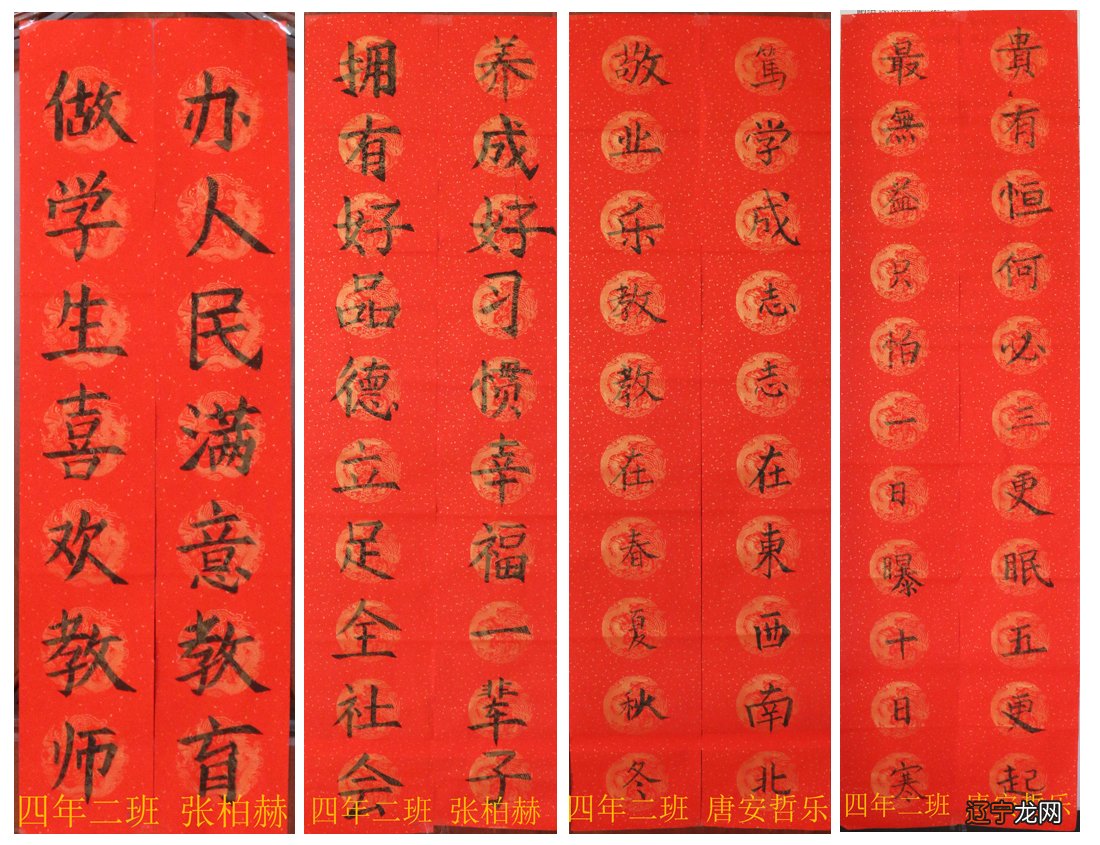 办人民满意教育
做学生喜欢教师
四年二班 张柏赫
养成好习惯幸福一辈子
拥有好品德立足全社会
四年二班 张柏赫
篤学成志志在東西南北
敬业乐教教在春夏秋冬
四年二班 唐安哲乐
貴有恒何必三更眠五更起
最無益只怕一日曝十日寒
四年二班
辽宁龙网